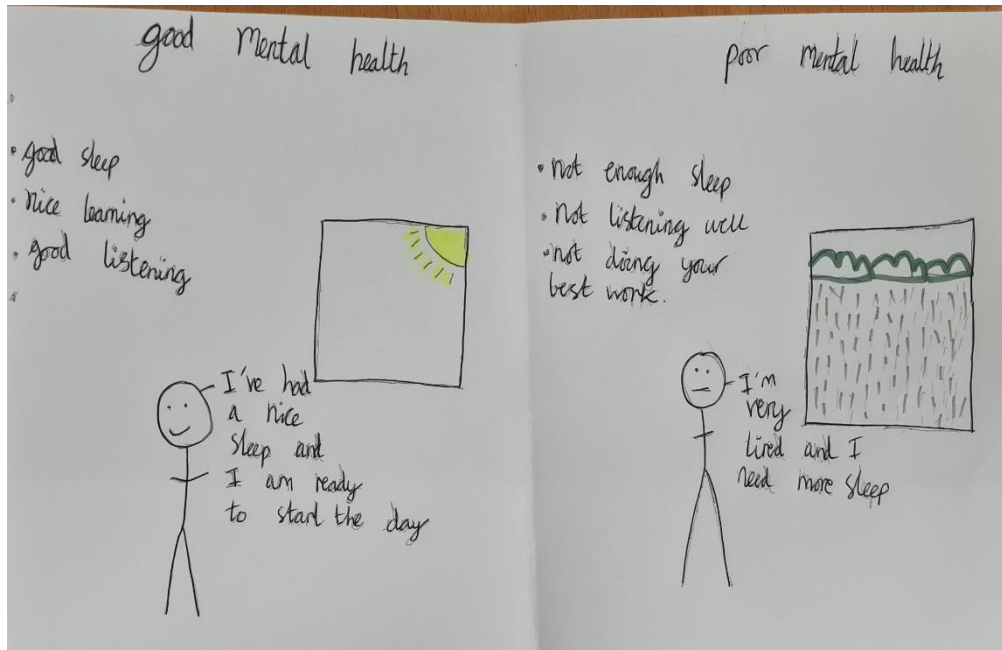 good mental health
• good sleep
• nice learning
• good listening
I've had
a nice
sleep and
I am ready
to start the day
poor mental health
• not enough sleep
• not listening well
• not doing your
best work.
I'm
very
tired and I
need more sleep